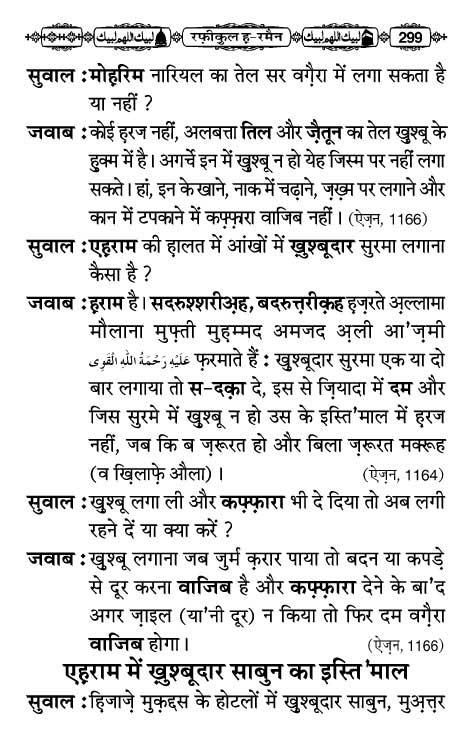 لبيك اللهم لبيك रफ़ीकुल ह-रमैन لبيك اللهم لبيك 299
सुवाल : मोह़रिम नारियल का तेल सर वग़ैरा में लगा सकता है
या नहीं ?
जवाब : कोई ह़रज नहीं, अलबत्ता तिल और ज़ैतून का तेल ख़ुश्बू के
हुक्म में है। अगर्चे इन में ख़ुश्बू न हो येह जिस्म पर नहीं लगा
सकते। हां, इन के खाने, नाक में चढ़ाने, ज़ख़्म पर लगाने और
कान में टपकाने में कफ़्फ़ारा वाजिब नहीं। (ऐज़न, 1166)
सुवाल : एह़राम की ह़ालत में आंखों में ख़ुश्बूदार सुरमा लगाना
कैसा है ?
जवाब : ह़राम है। सदरुश्शरीअ़ह, बदरुत़्त़रीक़ह ह़ज़रते अ़ल्लामा
मौलाना मुफ़्ती मुह़म्मद अमजद अ़ली आ'ज़मी
عَلَيْهِ رَحْمَةُ اللهِ الْقَوِى फ़रमाते हैं : ख़ुश्बूदार सुरमा एक या दो
बार लगाया तो स-दक़ा दे, इस से ज़ियादा में दम और
जिस सुरमे में ख़ुश्बू न हो उस के इस्ति'माल में ह़रज
नहीं, जब कि ब ज़रूरत हो और बिला ज़रूरत मक्रूह
(व ख़िलाफ़े औला)। (ऐज़न, 1164)
सुवाल : ख़ुश्बू लगा ली और कफ़्फ़ारा भी दे दिया तो अब लगी
रहने दें या क्या करें ?
जवाब : ख़ुश्बू लगाना जब जुर्म क़रार पाया तो बदन या कपड़े
से दूर करना वाजिब है और कफ़्फ़ारा देने के बा'द
अगर ज़ाइल (या'नी दूर) न किया तो फिर दम वग़ैरा
वाजिब होगा। (ऐज़न, 1166)
एह़राम में ख़ुश्बूदार साबुन का इस्ति'माल
सुवाल : ह़िजाज़े मुक़द्दस के होटलों में ख़ुश्बूदार साबुन, मुअ़त़्त़र